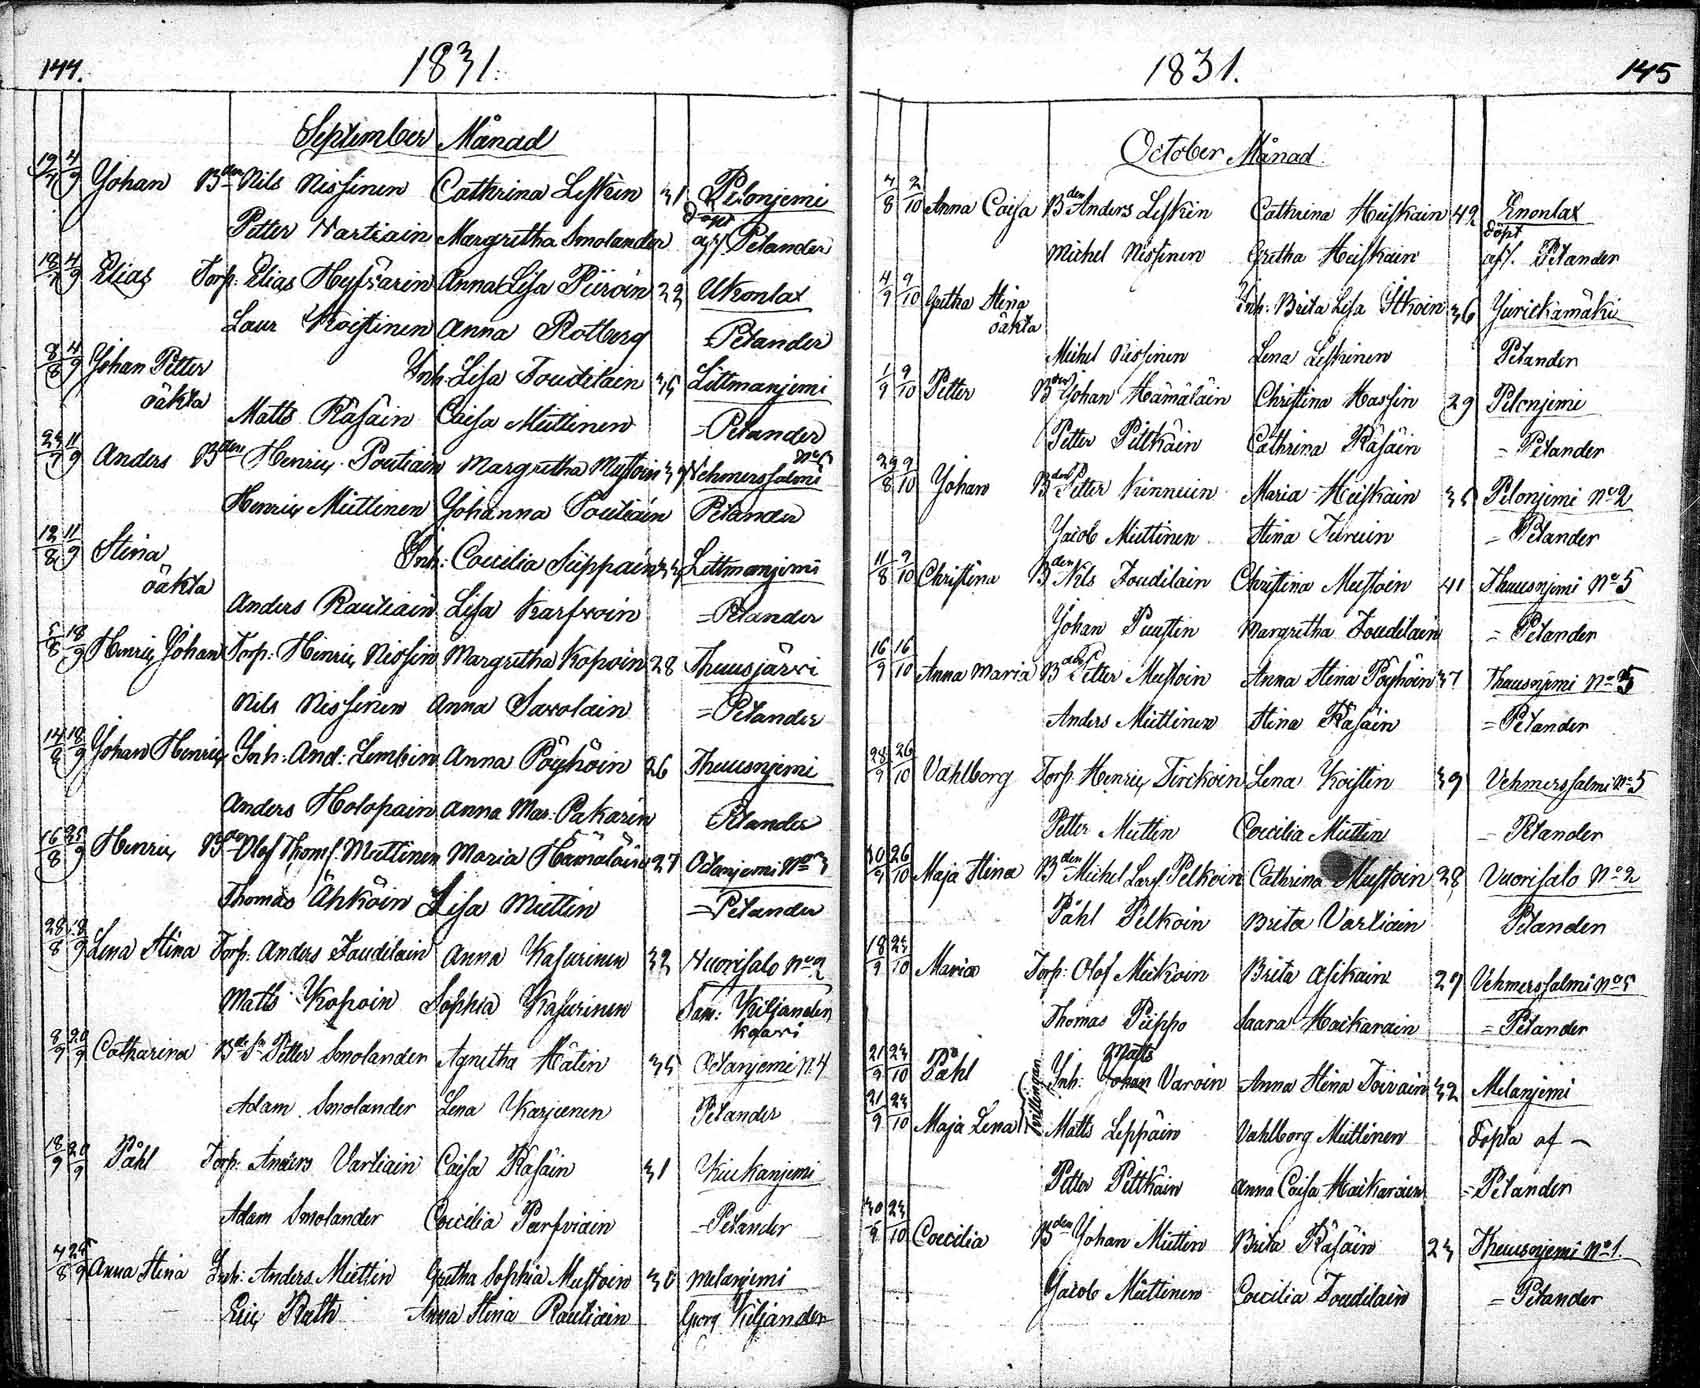 144.
1831.
September Månad
19/7 4/9 Johan Bden Nils Nissinen Cathrina Leskein 31 Pelonjemi
Petter Martiain Margretha Smolander döpt af/. Petander
18/7 4/9 Elias Torp: Elias Hyfvärin Anna Lisa Piiroin 22 Ukonlax
Laur Koistinen Anna Rotberg =Petander
8/8 4/9 Johan Petter Inh: Lisa Toudilain 35 Littmanjemi
oäkta
Matts Räsäin Caisa Miettinen =Petander
11/9 Anders Bden Henric Poutiain Margretha Mustoin Vehmerssalmi
Henric Miettinen Johanna Poutiain Petander
12/8 11/9 Stina Inh: Coecilia Siippain Littmanjemi
oäkta
Anders Rautiain Lisa Karfvoin =Petander
5/8 18/9 Henric Johan Torp: Henric Nissin Margretha Kopoin 28 Thuusjärvi
Nils Nissinen Anna Savolain =Petander
14/8 18/9 Johan Henric Inh: And: Lembin Anna Pöyhöin 26 Thuusnjemi
Anders Holopain Anna Mar. Pakarin Petander
16/8 25/9 Henric Olof Thoms/. Miettinen Maria Hämäläin 27 Oetanjemi No 3
Thomas Åhköin Lisa Miettin =Petander
28/8 18/9 Lena Stina Torp: Anders Taudilain Anna Kasurinen 32 Vuorisalo No 2
Matts Kopoin Sophia Kasurinen Sam: Kiljander
8/9 20/9 Catharina Petter Smolander Agnetha Hätin 35 Oetanjemi N.4
Adam Smolander Lena Karjunen Petander
18/9 20/9 Påhl Torp: Anders Vartiain Caisa Räsäin 31 Kiukanjemi
Adam Smolander Coecilia Parfviain =Petander
25/9 Anna Stina Inh: Anders Miettin Gretha Sophia Mustoin 30 Melanjemi
Eric Rath Anna Stina Rautiain Georg Kiljander
1831.
145
October Månad
7/8 2/10 Anna Caisa Bden Anders Leskin Cathrina Heiskain 42 Enonlax
Michel Nissinen Gretha Heiskain döpt af/. Petander
4/9 9/10 Gretha Stina Inh: Brita Lisa Itkoin 36 Jurickamäki
oäkta
Michel Nissinen Lena Leskinen Petander
1/9 9/10 Petter Bden Johan Hämäläin Christina Hassin 29 Pelonjemi
Petter Pitkäin Cathrina Räsäin =Petander
29/8 9/10 Johan Bden Petter Kinnuin Maria Heiskain 35 Pelonjemi No 2
Jacob Miettinen Stina Turuin =Petander
11/8 9/10 Christina Bden Nils Toudilain Christina Mustoin 41 Thuusnjemi No 5
Johan Puustin Margretha Toudilain =Petander
16/9 16/10 Anna Maria Bden Petter Mustoin Anna Stina Pöyhöin 37 Thuusnjemi No 5
Anders Miettinen Stina Räsäin =Petander
28/9 26/10 Vahlborg Torp. Henric Tirckoin Lena Koistin 39 Vehmerssalmi No 5
Petter Miettin Coecilia Miettin =Petander
30/9 26/10 Maja Stina Bden Michel Lars/. Pelkoin Cathrina Mustoin 28 Vuorisalo No 2
Påhl Pelkoin Brita Vartiain Petander
18/9 23/10 Maria Torp: Olof Miikoin Brita Asikain 29 Vehmerssalmi No 5
Thomas Piippo Saara Hackarain =Petander
21/9 23/10 Påhl Inh: Matts Johan Varoin Anna Stina Toivain 32 Melanjemi
tvillingar
21/9 23/10 Maja Lena Matts Leppäin Vahlborg Miettinen Töpta af –
Petter Pitkäin Anna Caisa Hackarain =Petander
30/9 23/10 Coecilia Bden Johan Miettin Brita Räsäin 23 Thuusnjemi No 1.
Jacob Miettinen Coecilia Toudilain =Petander